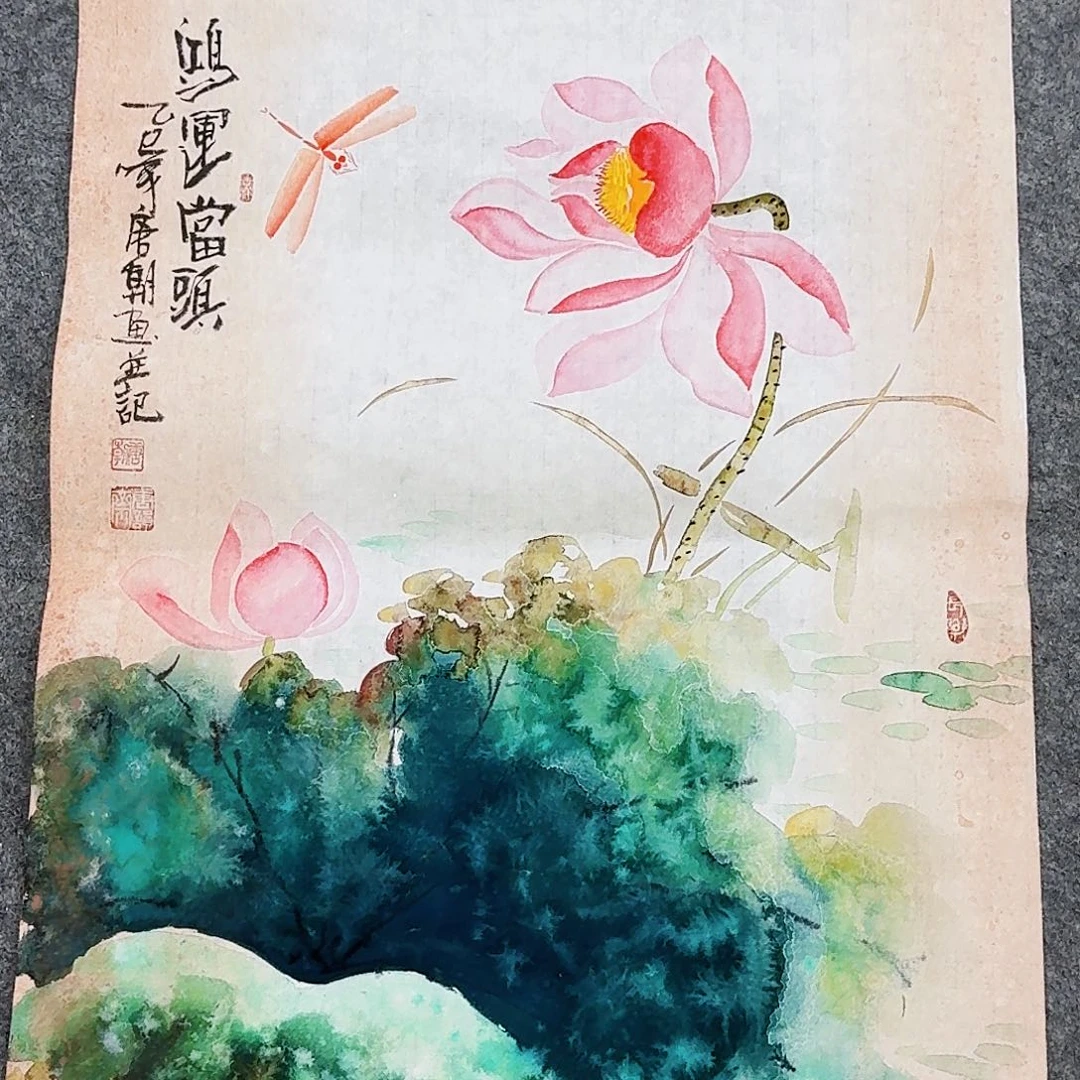 鴻運當頭
乙巳年唐朝畫並記